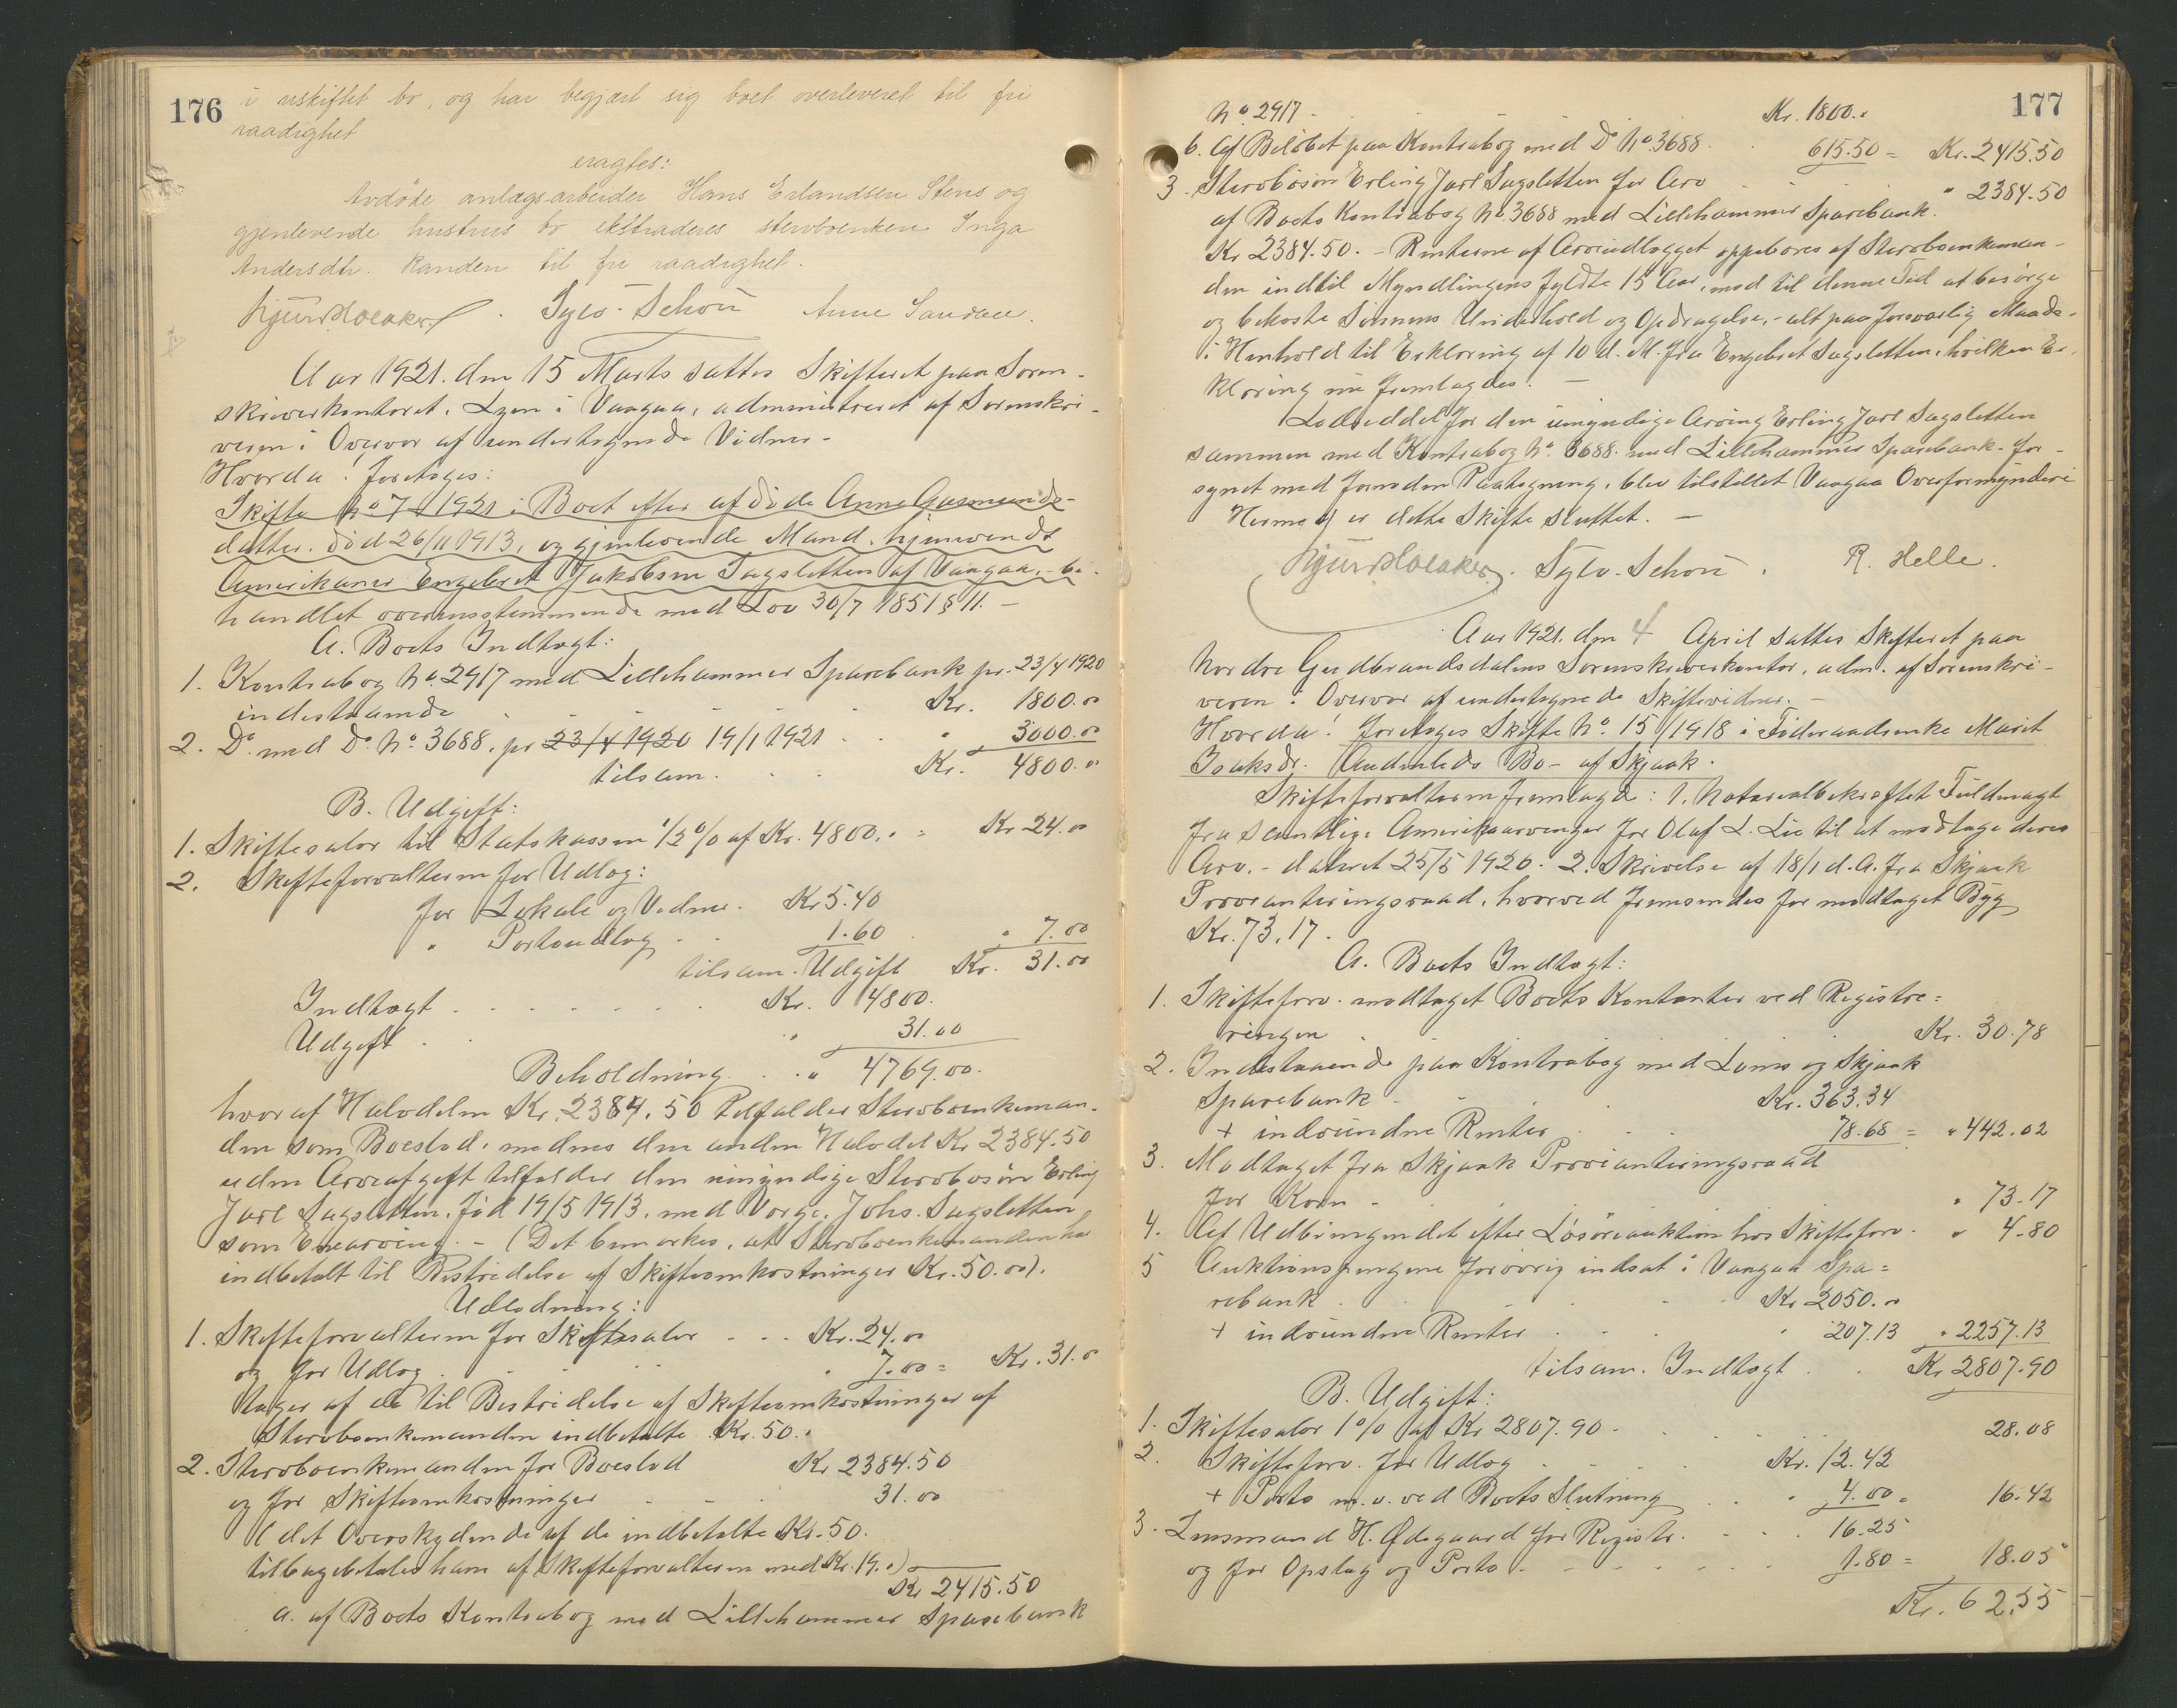 176
i uskiftet bo, og har begjært sig boet overleveret til fri
raadighet
eragtes:
Avdøde anlægsarbeider Hans Erlandsen Stens og
gjenlevende hustrus bo ekstraderes stervboenken Inga
Andersdtr. Randen til fri raadighet.
Sylv. Schou Anne Sandaa.
Aar 1921. den 15 Marts sattes Skifteret paa Soren-
skriverkontoret, Lyen i Vaagaa, administreret af Sorenskri-
veren i Overvær af undertegnede Vidner.
Hvorda! foretoges:
Skifte No 7 1921 i Boet efter afdøde Anne Gusmunds-
datter. død 26/11 1913, og gjenlevende Mand, hjemvendt
Amerikaner Engebret Jakobsen Sagsletten af Vaagaa, be-
handlet overensstemmende med Lov 30/7 1851 § 11. -
A. Boets Indtægt:
1. Kontrabog No. 2917 med Lillehammer Sparebank pr. 23/4 1920
indestaaende Kr. 1800.00
2. Do. med Do. No. 3688, pr 23/4 1920 19/1 1921 " 3000.00
tilsam. Kr. 4800.00
B. Udgift:
1. Skiftesalær til Statskassen 1/2 % af Kr. 4800. = Kr 24.00
2. Skifteforvalteren for Udlæg:
for Lokale og Vidner. Kr 5.40
" Portoudlæg 1.60 " 7.00
tilsam. Udgift Kr. 31.00
Indtægt Kr. 4800.
Udgift " 31.00
Beholdning " 4769.00.
hvoraf Halvdelen Kr. 2384.50 tilfalder Stervboenkeman-
den som Boeslod, medens den anden Halvdel Kr 2384.50
uden Arveafgift tilfalder den umyndige Stervbosøn Erling
Jarl Sagsletten, fød 19/5 1913, med Værge, Johs. Sagsletten
som Enearving. - (Det bemærkes, at Stervboenkemanden har
indbetalt til Bestridelse af Skifteomkostninger Kr. 50.00).
Udlodning:
1. Skifteforvalteren for Skiftesalær Kr. 24.00
og for Udlæg " 7.00 = Kr. 31.00
tages af de til Bestridelse af Skifteomkostninger af
Stervboenkemanden indbetalte Kr. 50.
2. Stervboenkemanden for Boeslod Kr 2384.50
og for Skifteomkostninger 31.00
(det Overskydende af de indbetalte Kr. 50.
tilbagebetales ham af Skifteforvalteren med Kr. 19.)
Kr 2415.50
a. af Boets Kontrabog med Lillehammer Sparebank
177
No. 2917 Kr. 1800.
b. Af Beløbet paa Kontrabog med Do No. 3688 615.50 = Kr. 2415.50
3. Stervbosøn Erling Jarl Sagsletten for Arv " 2384.50
af Boets Kontrabog No 3688 med Lillehammer Sparebank.
Kr 2384.50. - Renterne af Arveudlægget oppebæres af Stervboenkeman-
den indtil Myndlingens fyldte 15 Aar, mod til denne Tid at besørge
og bekoste Sønnens Underhold og Opdragelse, - alt paa forsvarlig Maade -
i Henhold til Erklæring af 10 d. M. fra Engebret Sagsletten, hvilken Er-
klæring nu fremlagdes. -
Lodseddel for den umyndige Arving Erling Jarl Sagsletten
sammen med Kontrabog No. 3688 med Lillehammer Sparebank for-
synet med fornøden Paategning, blev tilstillet Vaagaa Overformynderi
Hermed er dette Skifte sluttet. -
Sylv. Schou. R. Helle.
Aar 1921. den 4 April sattes Skifteret paa
Nordre Gudbrandsdalens Sorenskriverkontor, adm. af Sorenskri-
veren i Overvær af undertegnede Skiftevidner. -
Hvorda! foretoges Skifte No. 15/1918 i Føderaadsenke Marit
Isaksdr. Andvleds Bo - af Skjaak.
Skifteforvalteren fremlagde: 1. Notarialbekræftet Fuldmagt
fra samtlige Amerikaarvinger for Olaf L. Lie til at modtage deres
Arv. - dateret 25/5 1920. 2. Skrivelse af 18/1 d. A. fra Skjaak
Provianteringsraad, hvorved fremsendes for modtaget Byg
Kr. 73.17.
A. Boets Indtægt:
1. Skifteforv. modtaget Boets Kontanter ved Registre=
ringen Kr. 30.78
2. Indestaaende paa Kontrabog med Loms og Skjaak
Sparebank Kr. 363.34
+ indvundne Renter 78.68 = " 442.02
3. Modtaget fra Skjaak Provianteringsraad
for Korn " 73.17
4. Af Udbringendet efter Løsøreauktion hos Skifteforv. " 4.80
5 Auktionspengene forøvrig indsat i Vaagaa Spa=
rebank Kr 2050.00
+ indvundne Renter 207.13 " 2257.13
tilsam. Indtægt Kr 2807.90
B. Udgift:
1. Skiftesalær 1 % af Kr 2807.90 28.08
2. Skifteforv. for Udlæg Kr. 12.42
+ Porto m. v. ved Boets Slutning " 4.00 = 16.42
3. Lensmand H. Ødegaard for Registr. 16.25
og for Opslag og Porto 1.80 = 18.05
Kr. 62.55